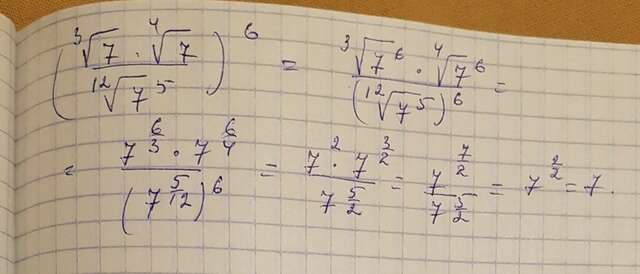 (∛7 · ∜7 / ¹²√7⁵)⁶ = ∛7⁶ · ∜7⁶ / (¹²√7⁵)⁶ =
= 7^(6/3) · 7^(6/4) / (7^(5/12))⁶ = 7² · 7^(3/2) / 7^(5/2) = 7^(7/2) / 7^(5/2) = 7^(2/2) = 7.